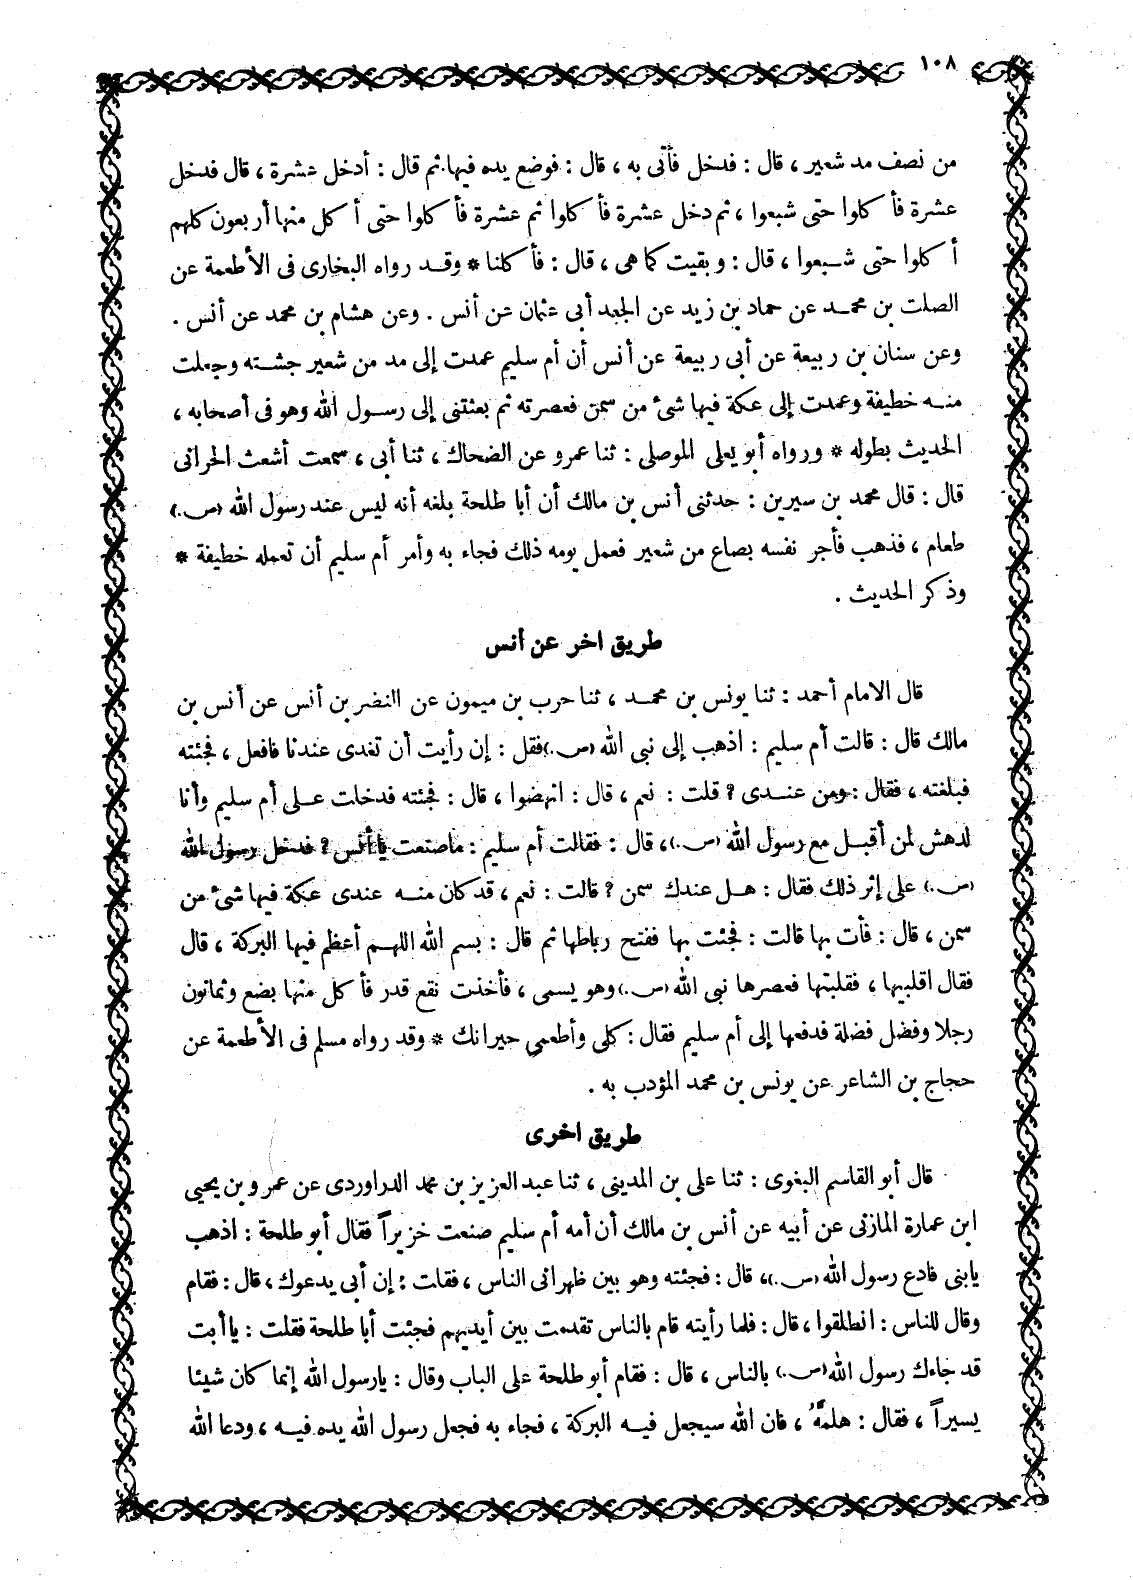 ١٠٨
من نصف مد شعير ، قال : فدخل فأتى به ، قال : فوضع يده فيها ثم قال : أدخل عشرة ، قال فدخل
عشرة فأكلوا حتى شبعوا ، ثم دخل عشرة فأكلوا ثم عشرة فأكلوا حتى أكل منها أربعون كلهم
أكلوا حتى شبعوا ، قال : وبقيت كما هى ، قال : فأكلنا * وقد رواه البخارى فى الأطعمة عن
الصلت بن محمد عن حماد بن زيد عن الجعد أبى عثمان عن أنس . وعن هشام بن محمد عن أنس .
وعن سنان بن ربيعة عن أبى ربيعة عن أنس أن أم سليم عمدت إلى مد من شعير جشته وجعلت
منه خطيفة وعمدت إلى عكة فيها شئ من سمن فعصرته ثم بعثتنى إلى رسول الله وهو فى أصحابه ،
الحديث بطوله * ورواه أبو يعلى الموصلى : ثنا عمرو عن الضحاك ، ثنا أبى ، سمعت أشعث الحرانى
قال : قال محمد بن سيرين : حدثنى أنس بن مالك أن أبا طلحة بلغه أنه ليس عند رسول الله (ص.)
طعام ، فذهب فأجر نفسه بصاع من شعير فعمل يومه ذلك فجاء به وأمر أم سليم أن تعمله خطيفة *
وذكر الحديث .
طريق اخر عن أنس
قال الامام أحمد : ثنا يونس بن محمد ، ثنا حرب بن ميمون عن النضر بن أنس عن أنس بن
مالك قال : قالت أم سليم : اذهب إلى نبى الله (ص.) فقل : إن رأيت أن تغدى عندنا فافعل ، فجئته
فبلغته ، فقال : ومن عندى ? قلت : نعم ، قال : انهضوا ، قال : فجئته فدخلت على أم سليم وأنا
لدهش لمن أقبل مع رسول الله (ص.)، قال : فقالت أم سليم : ماصنعت ياأنس ? فدخل رسول الله
(ص.) على إثر ذلك فقال : هل عندك سمن ? قالت : نعم ، قد كان منه عندى عكة فيها شئ من
سمن ، قال : فأت بها قالت : فجئت بها ففتح رباطها ثم قال : بسم الله اللهم أعظم فيها البركة ، قال
فقال اقلبيها ، فقلبتها فعصرها نبى الله (ص.) وهو يسمى ، فأخذت نقع قدر فأكل منها بضع وثمانون
رجلا وفضل فضلة فدفعها إلى أم سليم فقال : كلى وأطعمى جيرانك * وقد رواه مسلم فى الأطعمة عن
حجاج بن الشاعر عن يونس بن محمد المؤدب به .
طريق اخرى
قال أبو القاسم البغوى : ثنا على بن المدينى ، ثنا عبد العزيز بن محمد الدراوردى عن عمرو بن يحيى
ابن عمارة المازنى عن أبيه عن أنس بن مالك أن أمه أم سليم صنعت خزيراً فقال أبو طلحة : اذهب
يابنى فادع رسول الله (ص.)، قال : فجئته وهو بين ظهرانى الناس ، فقلت : إن أبى يدعوك ، قال : فقام
وقال للناس : انطلقوا ، قال : فلما رأيته قام بالناس تقدمت بين أيديهم فجئت أبا طلحة فقلت : ياأبت
قد جاءك رسول الله (ص.) بالناس ، قال : فقام أبو طلحة على الباب وقال : يارسول الله إنما كان شيئا
يسيراً ، فقال : هلمَّهُ ، فان الله سيجعل فيه البركة ، فجاء به فجعل رسول الله يده فيه ، ودعا الله